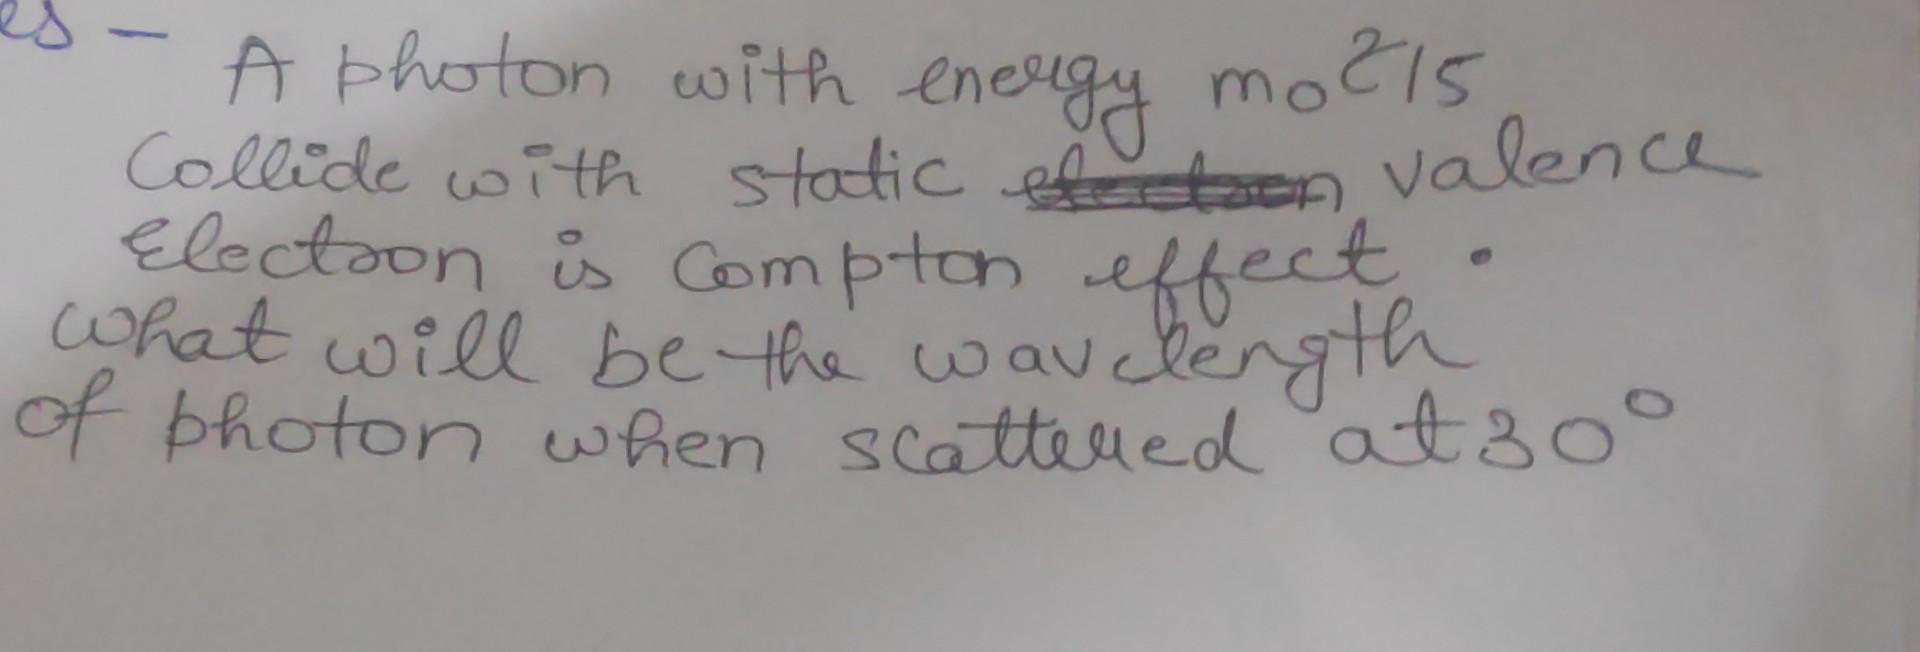 es -
A photon with energy mo²/5
Collide with static electron valence
Electron is Compton effect.
What will be the wavelength
of photon when scattered at 30°